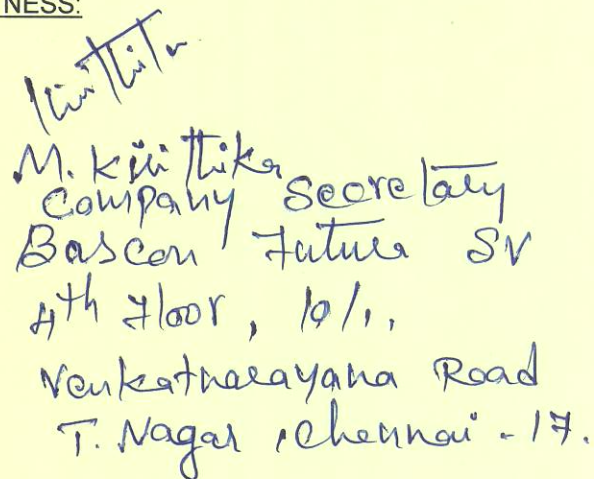 NESS:
Kirithika
M. Kirithika
Company Secretary
Bascon Futura SV
4th Floor, 10/1,
Venkatnarayana Road
T. Nagar, Chennai - 17.